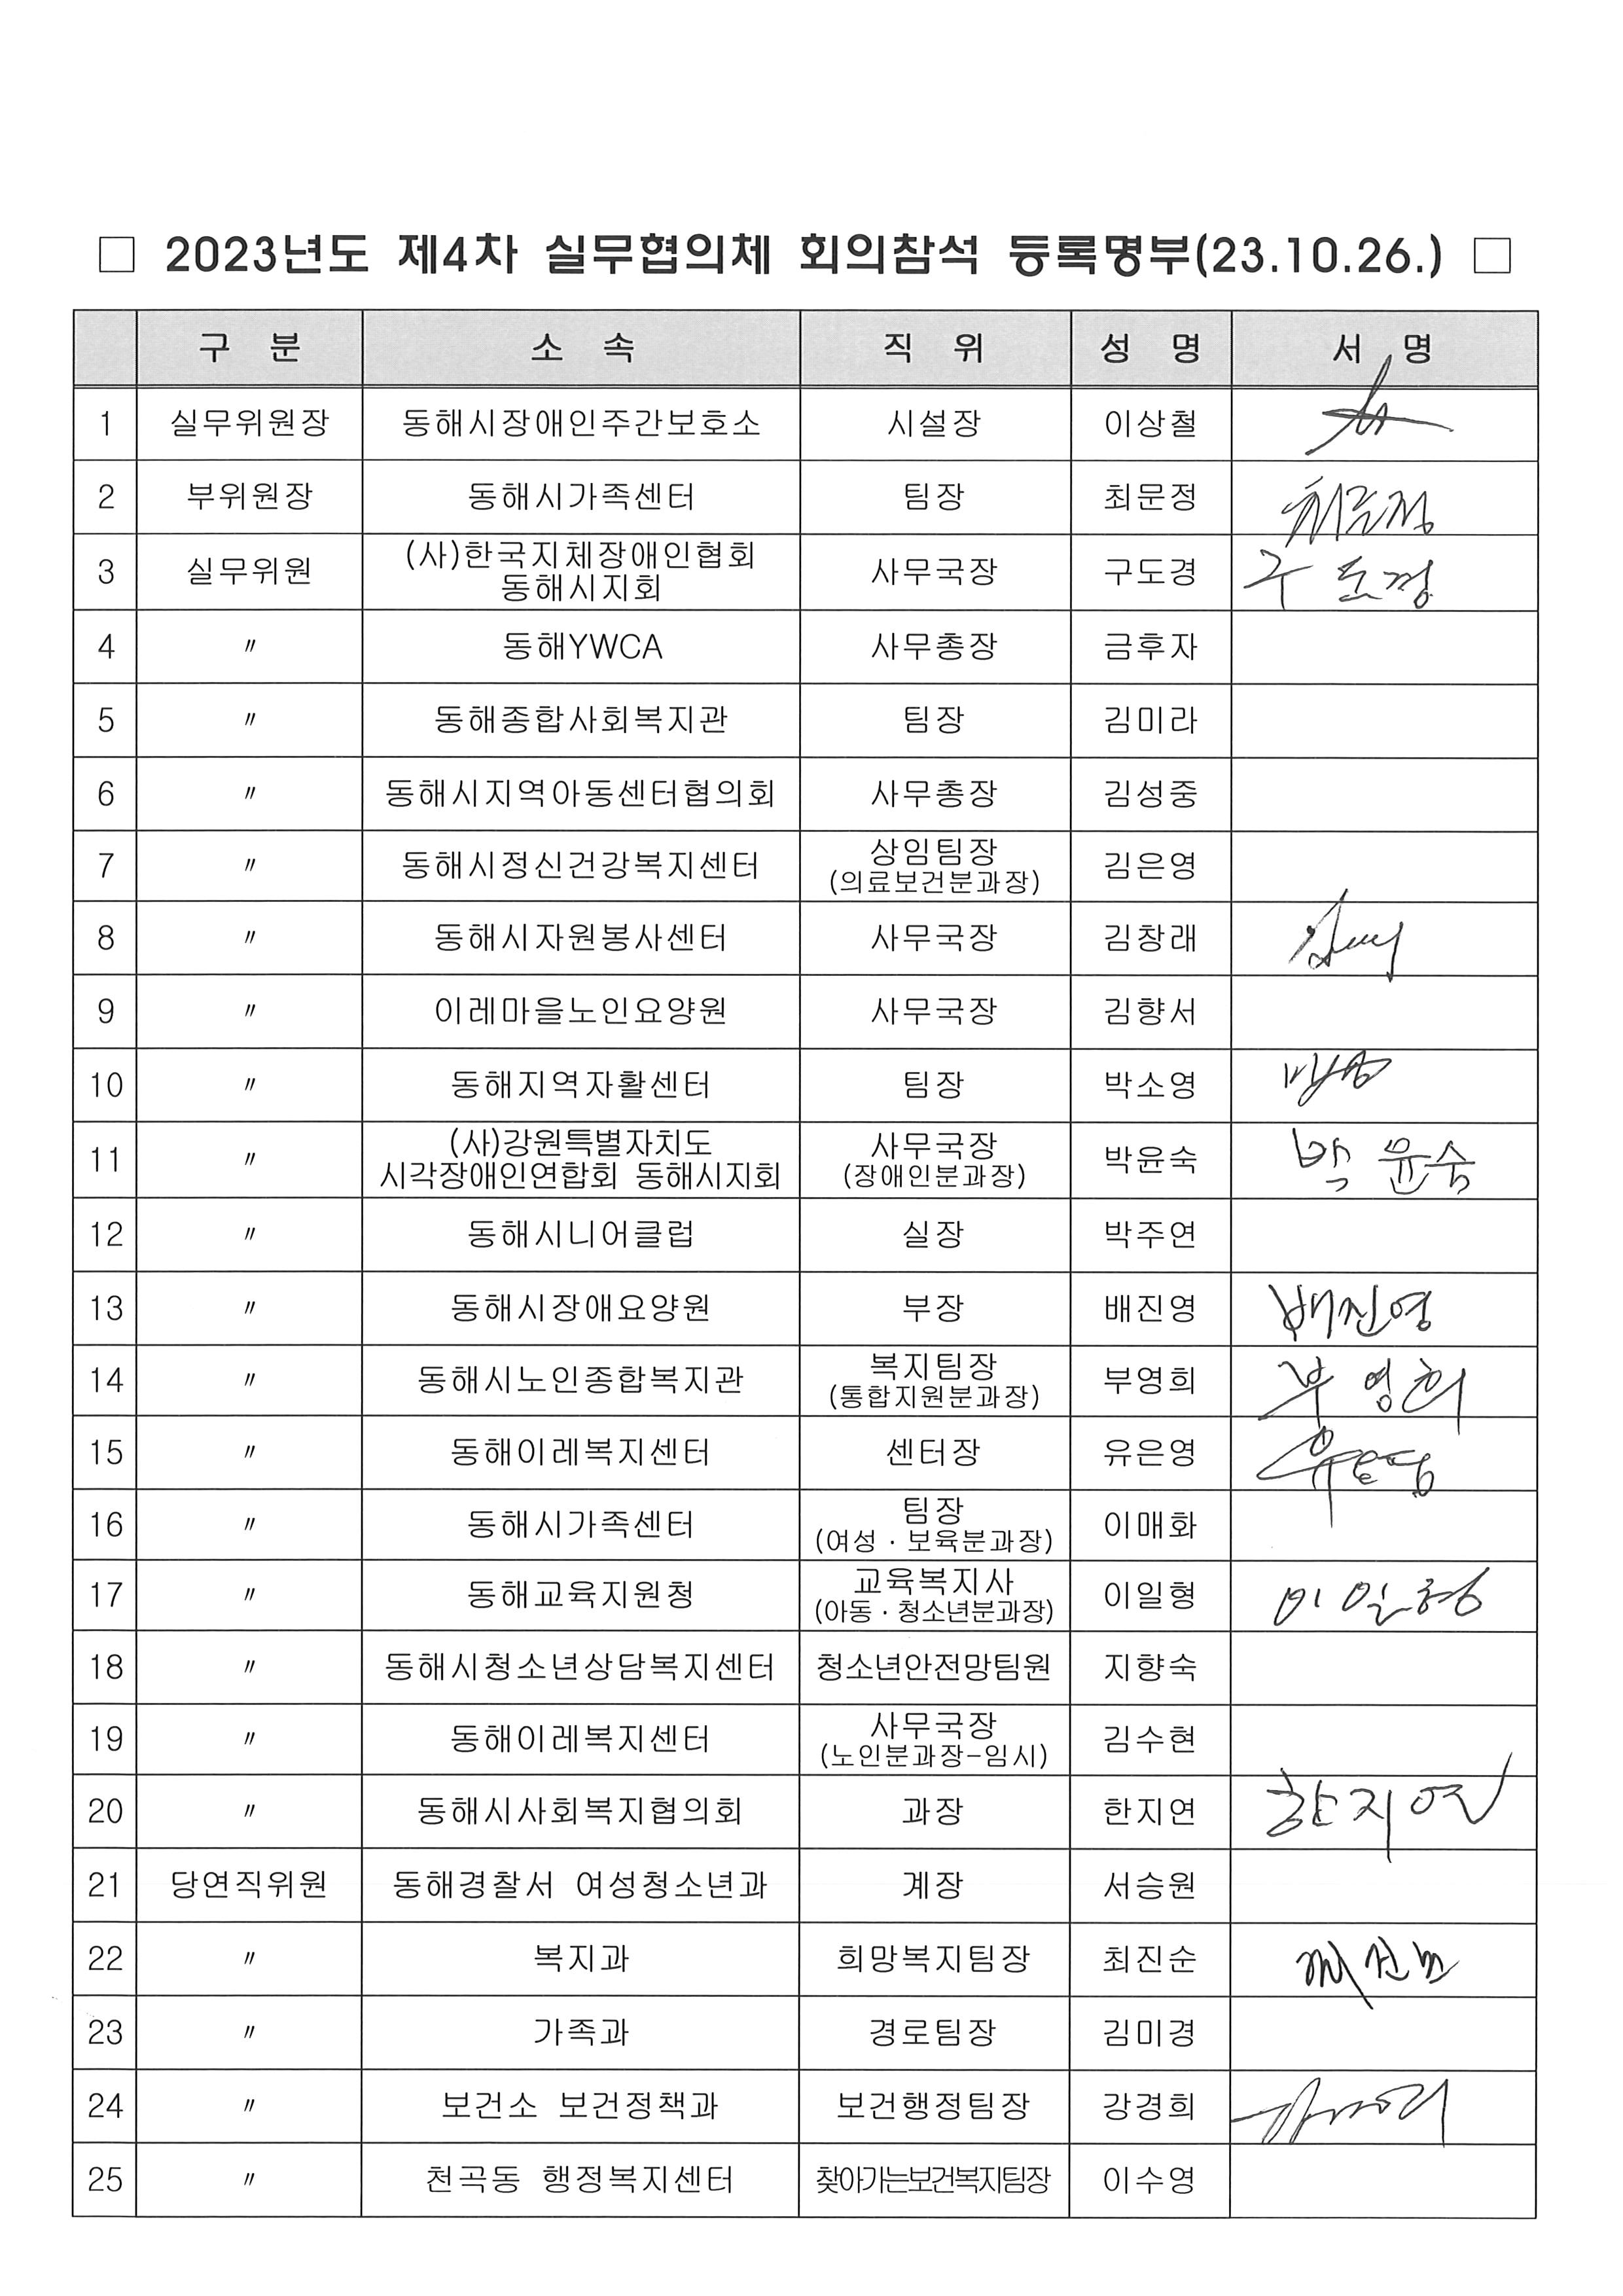 □ 2023년도 제4차 실무협의체 회의참석 등록명부(23.10.26.) □
구 분 소 속 직 위 성 명 서 명
1 실무위원장 동해시장애인주간보호소 시설장 이상철
2 부위원장 동해시가족센터 팀장 최문정 최문정
3 실무위원 (사)한국지체장애인협회 사무국장 구도경 구도경
동해시지회
4 〃 동해YWCA 사무총장 금후자
5 〃 동해종합사회복지관 팀장 김미라
6 〃 동해시지역아동센터협의회 사무총장 김성중
7 〃 동해시정신건강복지센터 상임팀장 김은영
(의료보건분과장)
8 〃 동해시자원봉사센터 사무국장 김창래
9 〃 이레마을노인요양원 사무국장 김향서
10 〃 동해지역자활센터 팀장 박소영
11 〃 (사)강원특별자치도 사무국장 박윤숙 박윤숙
시각장애인연합회 동해시지회 (장애인분과장)
12 〃 동해시니어클럽 실장 박주연
13 〃 동해시장애요양원 부장 배진영 배진영
14 〃 동해시노인종합복지관 복지팀장 부영희 부영희
(통합지원분과장)
15 〃 동해이레복지센터 센터장 유은영 유은영
16 〃 동해시가족센터 팀장 이매화
(여성·보육분과장)
17 〃 동해교육지원청 교육복지사 이일형 이일형
(아동·청소년분과장)
18 〃 동해시청소년상담복지센터 청소년안전망팀원 지향숙
19 〃 동해이레복지센터 사무국장 김수현
(노인분과장-임시)
20 〃 동해시사회복지협의회 과장 한지연 한지연
21 당연직위원 동해경찰서 여성청소년과 계장 서승원
22 〃 복지과 희망복지팀장 최진순
23 〃 가족과 경로팀장 김미경
24 〃 보건소 보건정책과 보건행정팀장 강경희
25 〃 천곡동 행정복지센터 찾아가는보건복지팀장 이수영